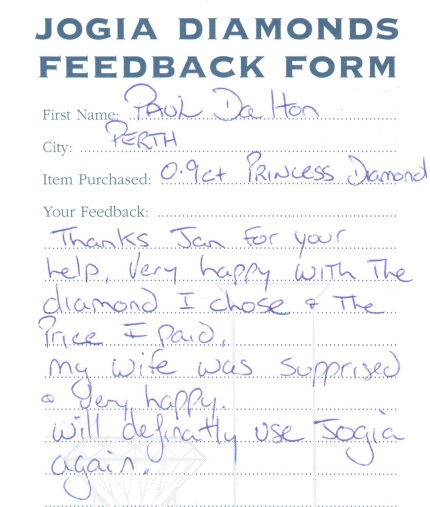 JOGIA DIAMONDS
FEEDBACK FORM
First Name: PAUL Dalton
City: PERTH
Item Purchased: 0.9ct PRINCESS Diamond
Your Feedback:
Thanks Jan for your
help, Very happy with The
diamond I chose & The
Price I paid.
my wife was supprised
& Very happy.
will definatly use Jogia
again.